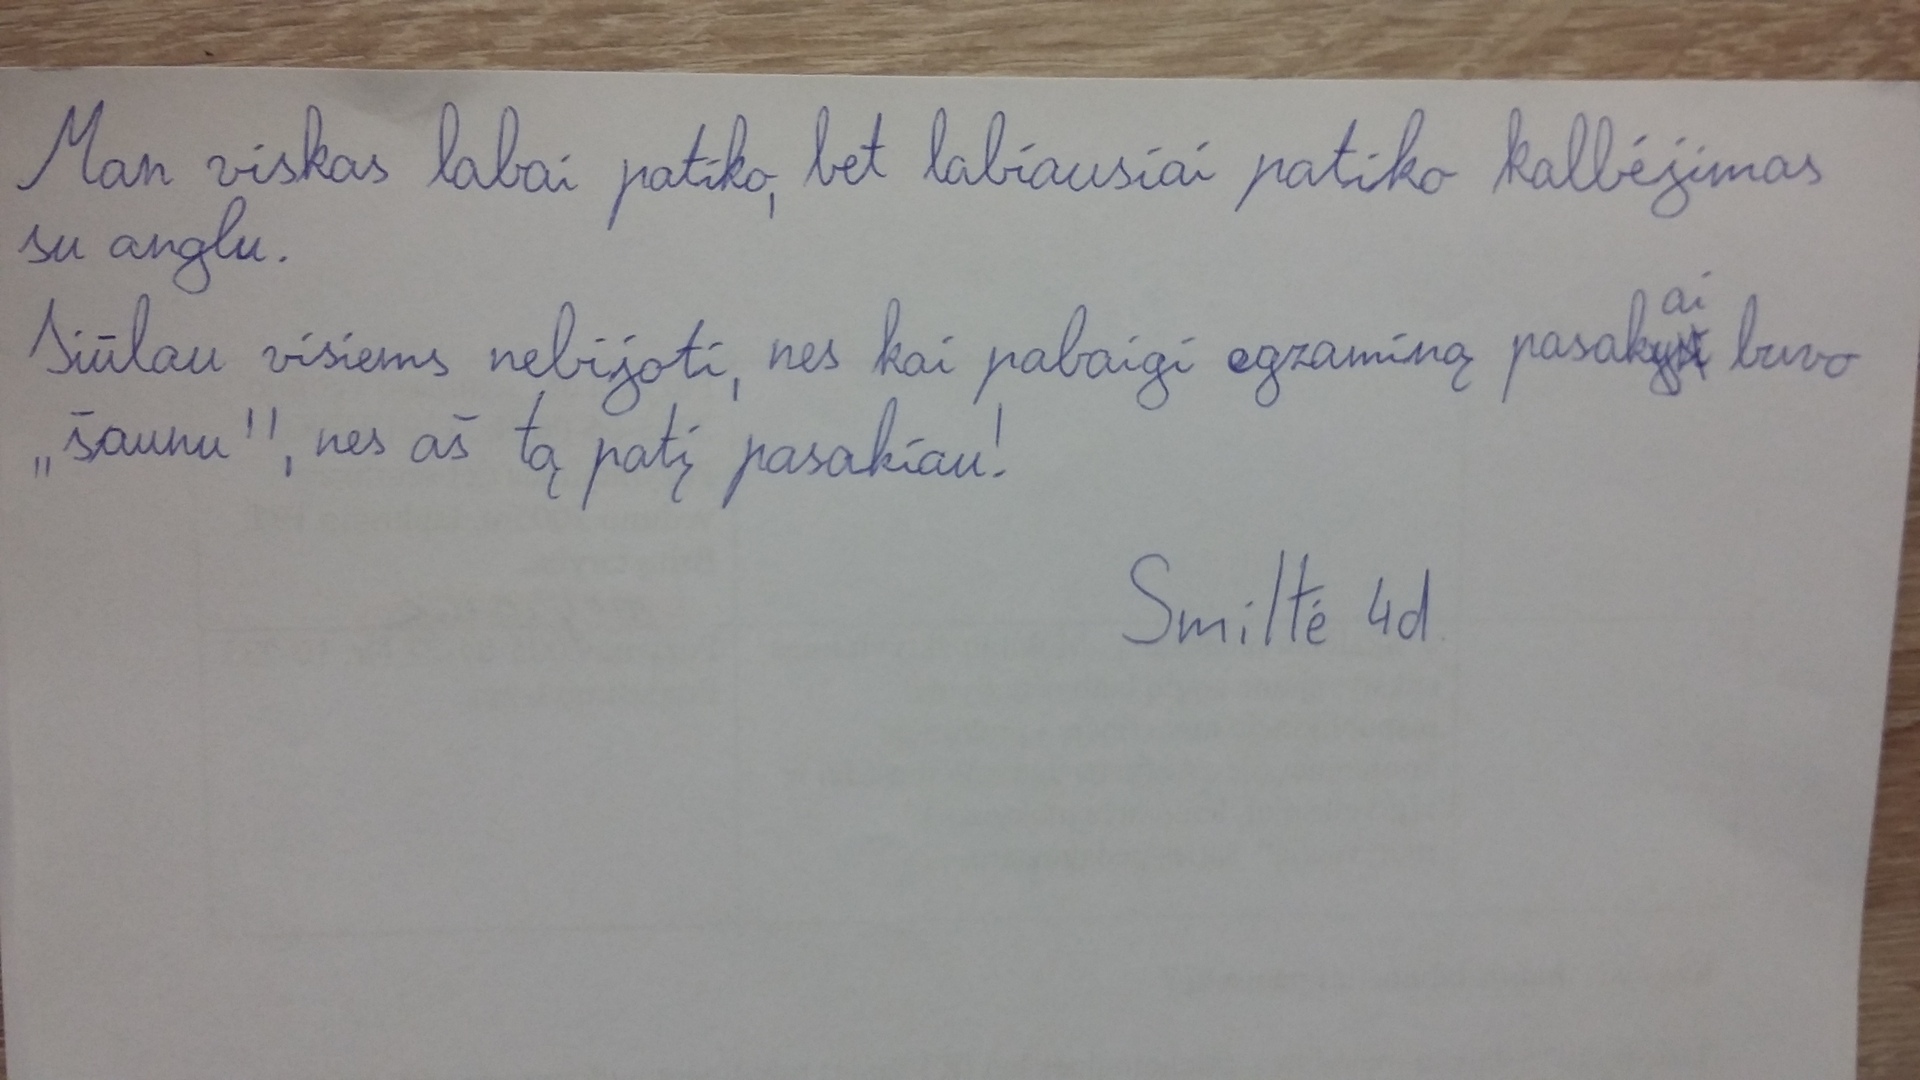 Man viskas labai patiko, bet labiausiai patiko kalbėjimas
su anglu.
Siūlau visiems nebijoti, nes kai pabaigi egzaminą pasakai buvo
„šaunu", nes aš tą patį pasakiau!
Smiltė 4d